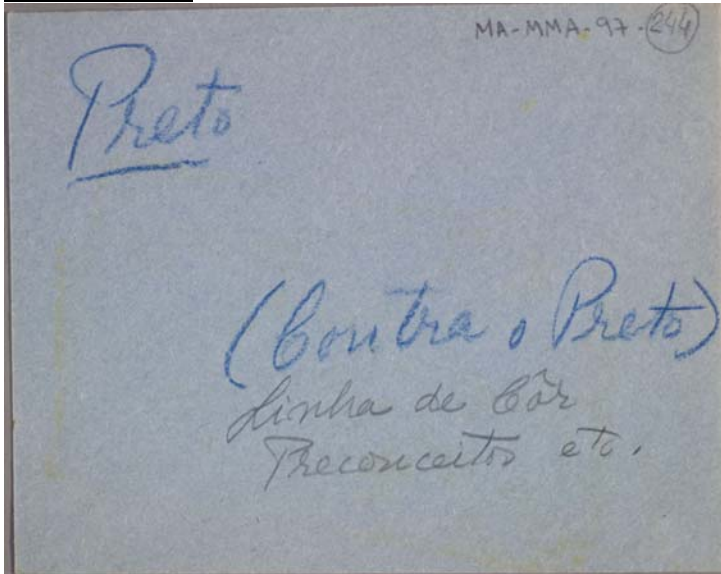 MA-MMA-97-244
Preto
(Contra o Preto)
Linha de Côr
Preconceitos etc.